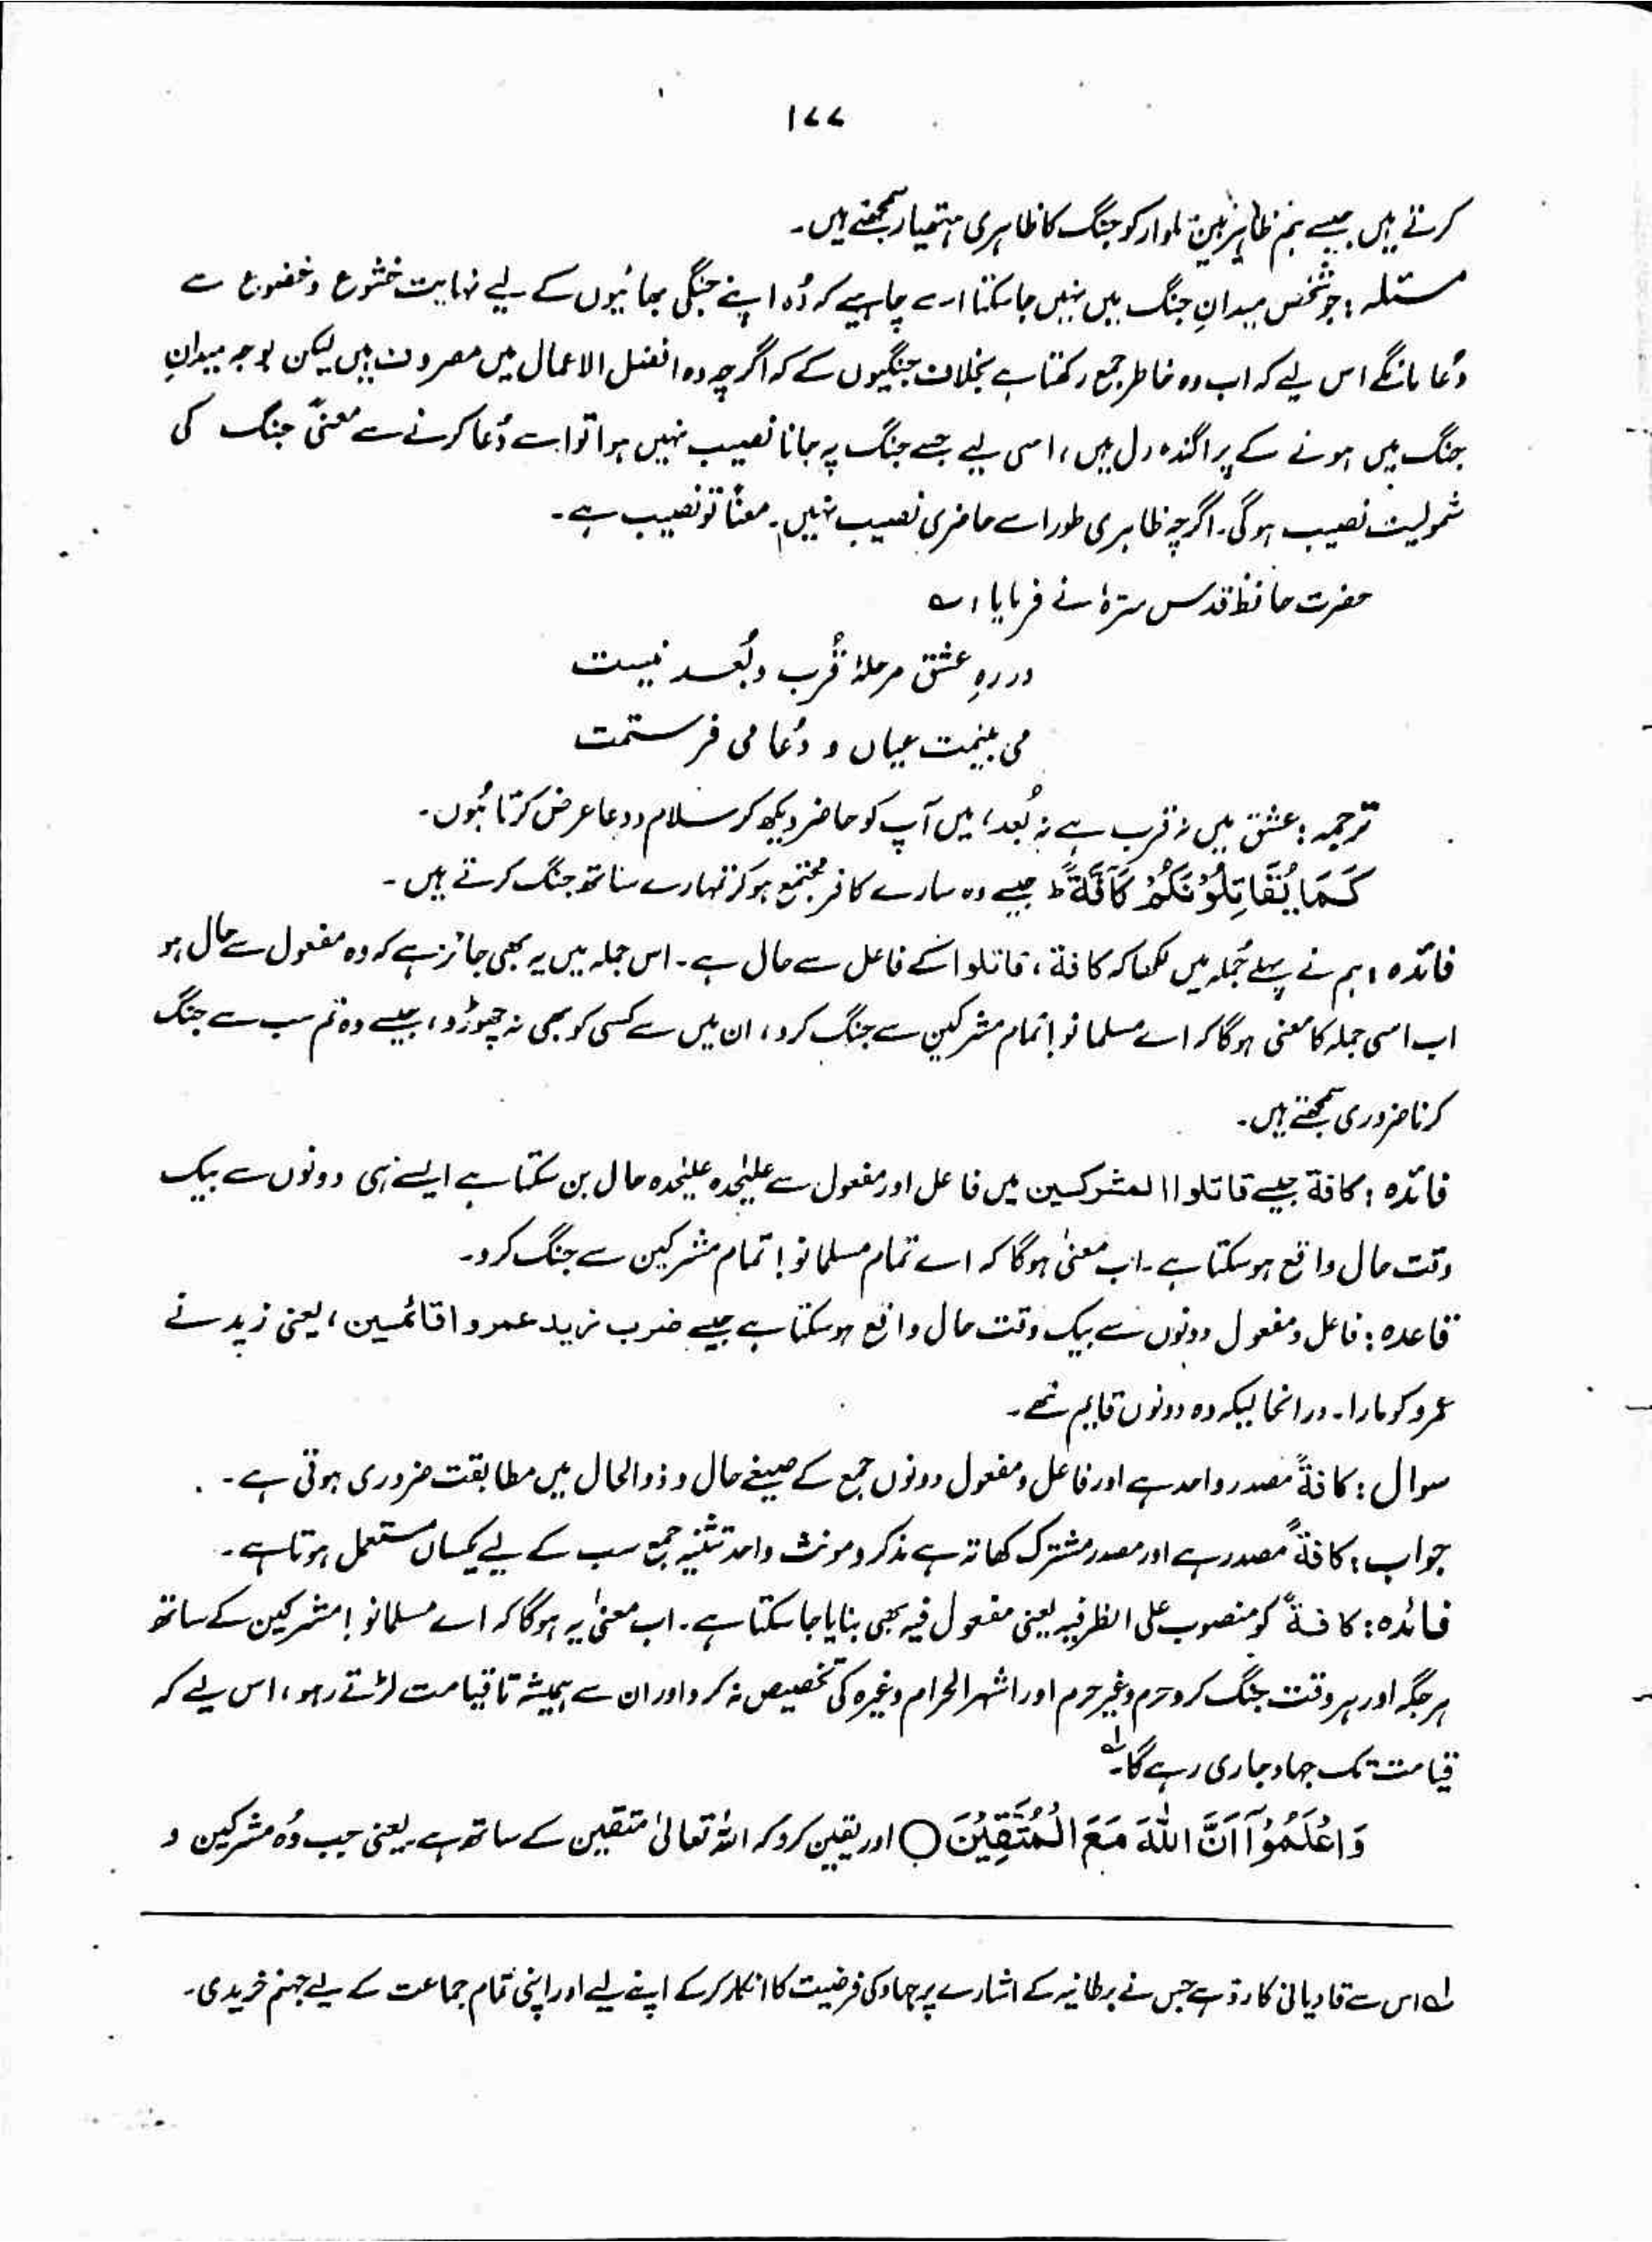 ۱۷۷
کرتے ہیں جیسے ہم ظاہر بین تلوار کو جنگ کا ظاہری ہتھیار سمجھتے ہیں۔
مسئلہ : جو شخص میدانِ جنگ میں نہیں جا سکتا اسے چاہیے کہ وُہ اپنے جنگی بھائیوں کے لیے نہایت خشوع و خضوع سے
دُعا مانگے اس لیے کہ اب وہ خاطر جمع رکھتا ہے بخلاف جنگیوں کے کہ اگرچہ وہ افضل الاعمال میں مصروف ہیں لیکن بوجہ میدانِ
جنگ میں ہونے کے پراگندہ دل ہیں ، اسی لیے جسے جنگ پہ جانا نصیب نہیں ہوا تو اسے دُعا کرنے سے معنیً جنگ کی
شمولیت نصیب ہوگی۔ اگرچہ ظاہری طور اسے حاضری نصیب نہیں۔ معنًا تو نصیب ہے۔
حضرت حافظ قدس سترہٗ نے فرمایا ؛ ؎
در رہِ عشق مرحلۂ قُرب و بُعد نیست
می بینمت عیاں و دُعا می فرستمت
ترجمہ : عشق میں نہ قرب ہے نہ بُعد ، میں آپ کو حاضر دیکھ کر سلام و دعا عرض کرتا ہُوں۔
كَمَا يُقَاتِلُوْنَكُمْ كَآفَّةً ط جیسے وہ سارے کافر مجتمع ہو کر تمہارے ساتھ جنگ کرتے ہیں۔
فائدہ : ہم نے پہلے جُملہ میں لکھا کہ کافة ، قاتلوا کے فاعل سے حال ہے۔ اس جملہ میں یہ بھی جائز ہے کہ وہ مفعول سے حال ہو
اب اسی جملہ کا معنی ہوگا کہ اے مسلمانو ! تمام مشرکین سے جنگ کرو ، ان میں سے کسی کو بھی نہ چھوڑو ، جیسے وہ تم سب سے جنگ
کرنا ضروری سمجھتے ہیں۔
فائدہ : کافة جیسے قاتلوا المشرکین میں فاعل اور مفعول سے علیٰحدہ علیٰحدہ حال بن سکتا ہے ایسے ہی دونوں سے بیک
وقت حال واقع ہو سکتا ہے۔ اب معنیٰ ہوگا کہ اے تمام مسلمانو ! تمام مشرکین سے جنگ کرو۔
قاعدہ : فاعل و مفعول دونوں سے بیک وقت حال واقع ہو سکتا ہے جیسے ضرب زید عمروا قائمین ، یعنی زید نے
عمرو کو مارا۔ درانحالیکہ وہ دونوں قایم تھے۔
سوال : کافةً مصدر واحد ہے اور فاعل و مفعول دونوں جمع کے صیغے حال و ذوالحال میں مطابقت ضروری ہوتی ہے۔
جواب : کافةً مصدر ہے اور مصدر مشترک کھاتہ ہے مذکر و مونث واحد تثنیہ جمع سب کے لیے یکساں مستعمل ہوتا ہے۔
فائدہ : کافةً کو منصوب علی الظرفیہ یعنی مفعول فیہ بھی بنایا جا سکتا ہے۔ اب معنیٰ یہ ہوگا کہ اے مسلمانو ! مشرکین کے ساتھ
ہر جگہ اور ہر وقت جنگ کرو حرم و غیر حرم اور اشہر الحرام وغیرہ کی تخصیص نہ کرو اور ان سے ہمیشہ تا قیامت لڑتے رہو ، اس لیے کہ
قیامت تک جہاد جاری رہے گا۔ لہ
وَاعْلَمُوْآ اَنَّ اللّٰهَ مَعَ الْمُتَّقِيْنَ ○ اور یقین کرو کہ اللہ تعالیٰ متقین کے ساتھ ہے یعنی جب وُہ مشرکین و
لہ اس سے قادیانی کا رد ہے جس نے برطانیہ کے اشارے پر جہاد کی فرضیت کا انکار کرکے اپنے لیے اور اپنی تمام جماعت کے لیے جہنم خریدی۔